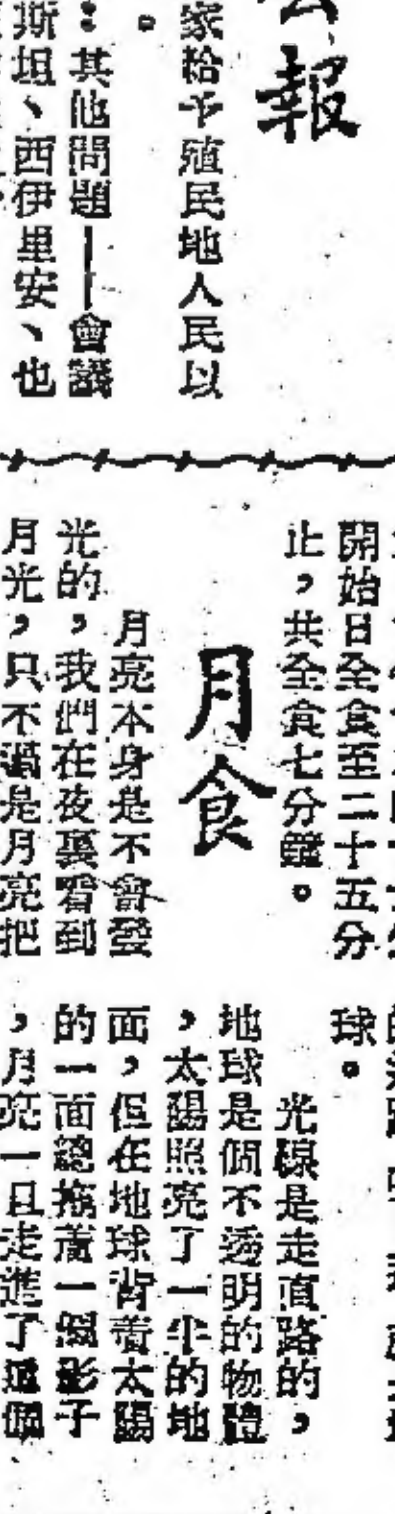 公報
家給予殖民地人民以
。
：其他問題——會議
斯坦、西伊里安、也
開始日全食至二十五分
止，共全食七分鐘。
月食
月亮本身是不會發
光的，我們在夜裏看到
月光，只不過是月亮把
球。
光線是走直路的，
地球是個不透明的物體
，太陽照亮了一半的地
面，但在地球背着太陽
的一面總拖着一個影子
，月亮一旦走進了這個